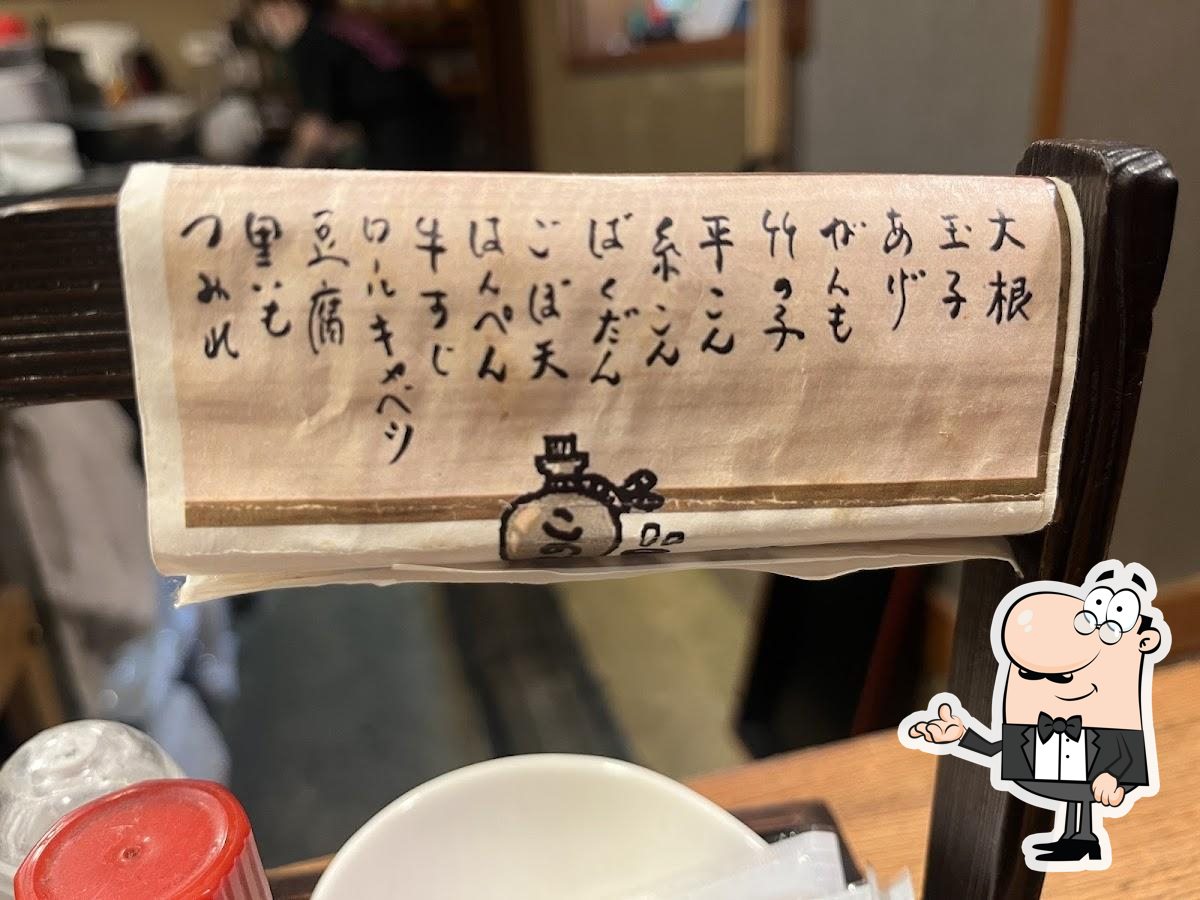 大根
玉子
あげ
がんも
竹の子
平こん
糸こん
ばくだん
ごぼ天
はんぺん
牛すじ
ロールキャベツ
豆腐
里いも
つみれ
この